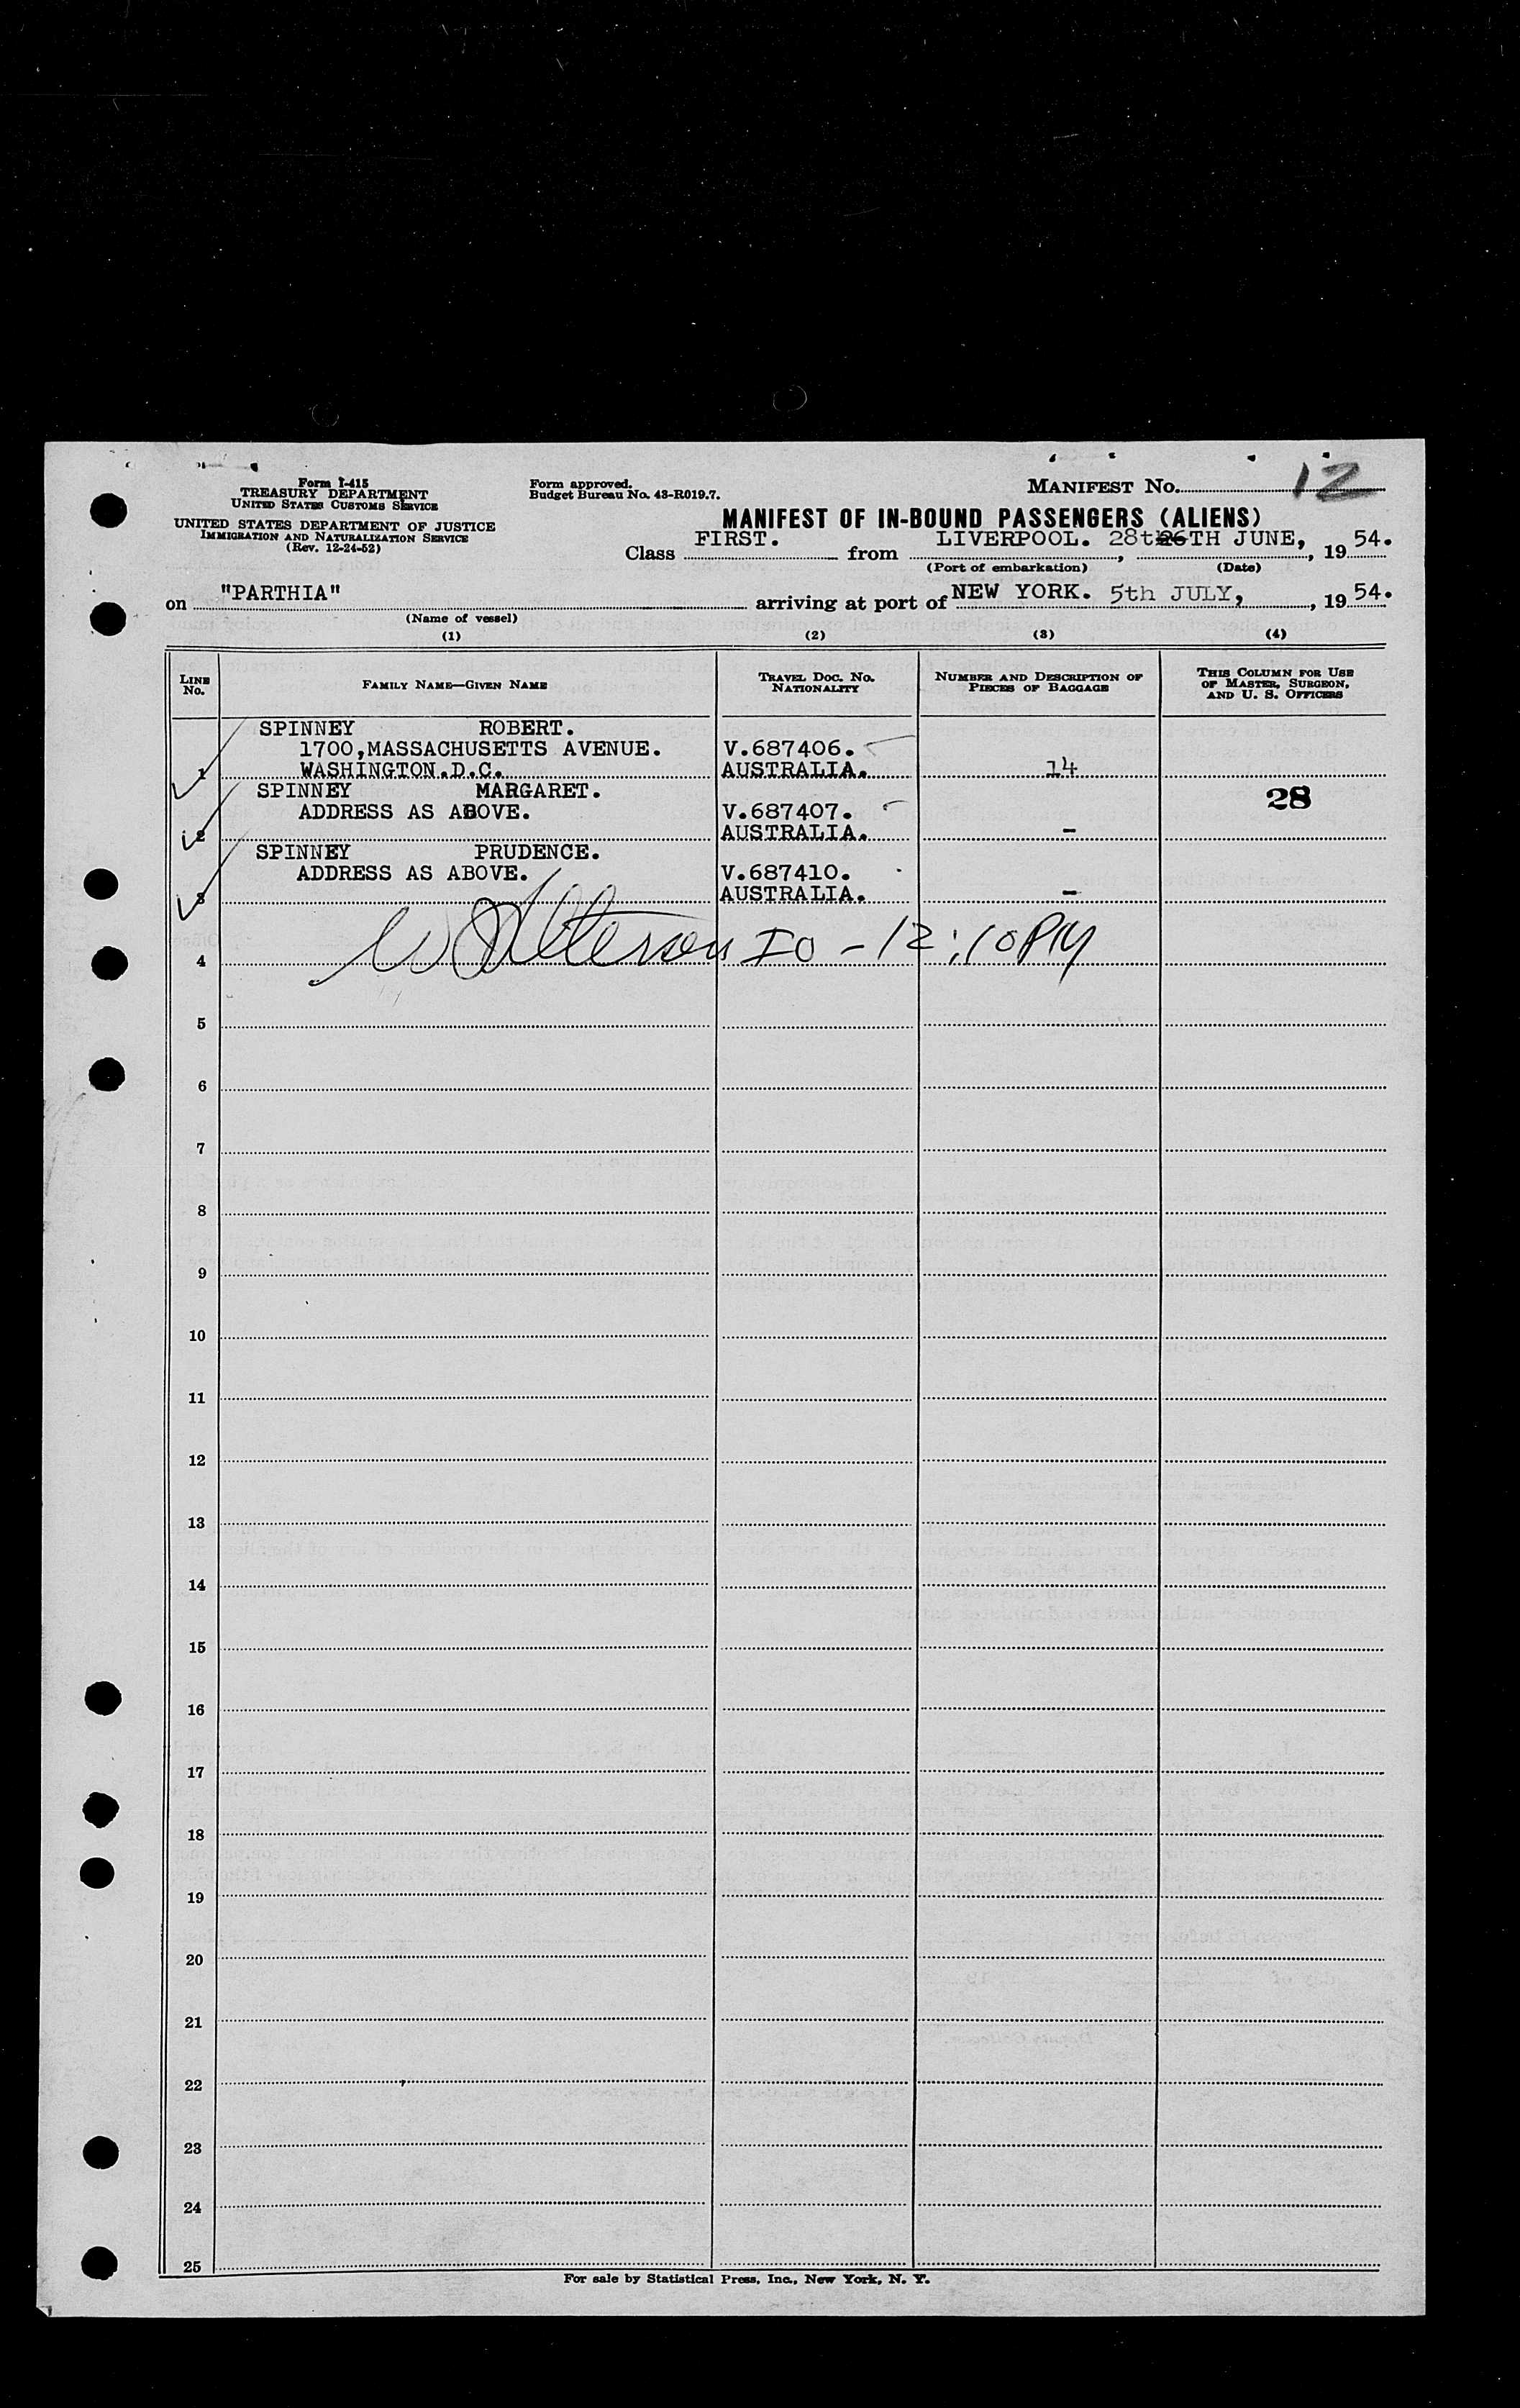 Form I-415
TREASURY DEPARTMENT
UNITED STATES CUSTOMS SERVICE
UNITED STATES DEPARTMENT OF JUSTICE
IMMIGRATION AND NATURALIZATION SERVICE
(Rev. 12-24-52)
Form approved.
Budget Bureau No. 43-R019.7.
MANIFEST NO. 12
MANIFEST OF IN-BOUND PASSENGERS (ALIENS)
Class FIRST. from LIVERPOOL. 28th 26TH JUNE, 1954.
(Port of embarkation) (Date)
on "PARTHIA" arriving at port of NEW YORK. 5th JULY, 1954.
(Name of vessel)
(1) (2) (3) (4)
LINE NO. FAMILY NAME—GIVEN NAME TRAVEL DOC. NO. NATIONALITY NUMBER AND DESCRIPTION OF PIECES OF BAGGAGE THIS COLUMN FOR USE OF MASTER, SURGEON, AND U. S. OFFICERS
SPINNEY ROBERT.
1700,MASSACHUSETTS AVENUE. V.687406.
1 WASHINGTON.D.C. AUSTRALIA. 14
SPINNEY MARGARET. 28
ADDRESS AS ABOVE. V.687407.
2 AUSTRALIA. -
SPINNEY PRUDENCE.
ADDRESS AS ABOVE. V.687410.
3 AUSTRALIA. -
4 IO - 12:10 PM
5
6
7
8
9
10
11
12
13
14
15
16
17
18
19
20
21
22
23
24
25
For sale by Statistical Press, Inc., New York, N. Y.